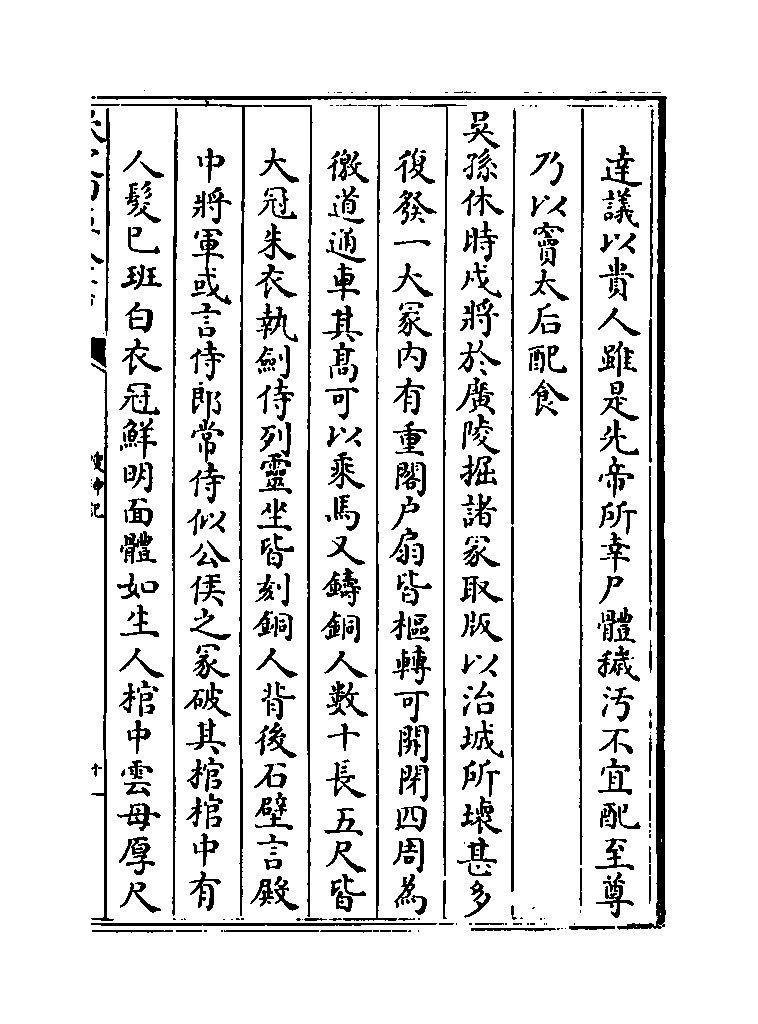 達議以貴人雖是先帝所幸尸體穢汚不宜配至尊
乃以竇太后配食
吳孫休時戍將於廣陵掘諸冢取版以治城所壊甚多
復發一大冢内有重閣户扇皆樞轉可開閉四周為
徼道通車其髙可以乘馬又鑄銅人數十長五尺皆
大冠朱衣執劍侍列靈坐皆刻銅人背後石壁言殿
中將軍或言侍郎常侍似公侯之冢破其棺棺中有
人髮已班白衣冠鮮明面體如生人棺中雲母厚尺
搜神記
十一